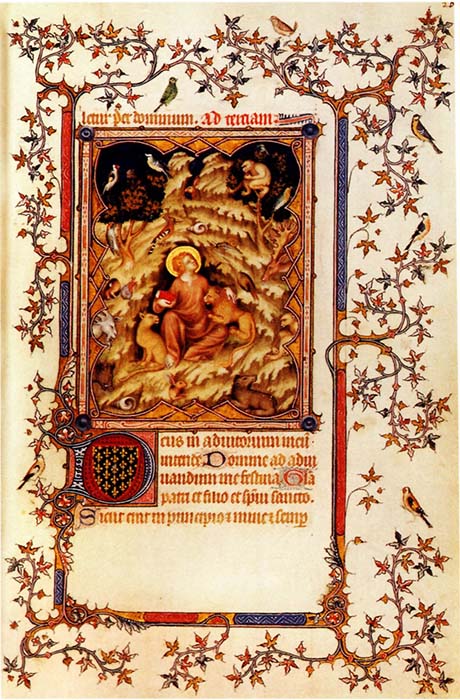 dominum. ad terciam
Deus in adiutorium meu
intende. Domine ad adiu
uandum me festina Gła
patri et filio et spui sancto.
Sicut erat in principio et nunc et semp